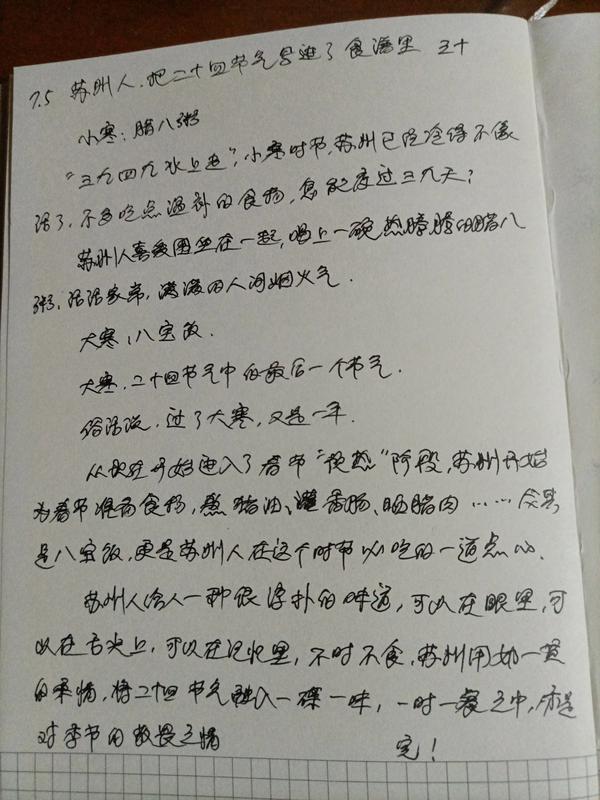 7.5 苏州人,把二十四节气写进了食谱里 三十
小寒:腊八粥
“三九四九冰上走”,小寒时节,苏州已经冷得不像
话了,不多吃点温补的食物,怎能度过三九天?
苏州人喜爱围坐在一起,喝上一碗热腾腾的腊八
粥,话话家常,满满的人间烟火气.
大寒:八宝饭.
大寒,二十四节气中的最后一个节气.
俗话说,过了大寒,又是一年.
从此往开始进入了春节“预热”阶段,苏州开始
为春节准备食物,熬猪油、灌香肠、晒腊肉……尤其
是八宝饭,更是苏州人在这个时节必吃的一道点心.
苏州人给人一种很淳朴的味道,可以在眼里,可
以在舌尖上,可以在记忆里,不时不食,苏州用如一贯
的柔情,将二十四节气融入一碟一味,一时一餐之中,皆是
对季节的敬畏之情
完!